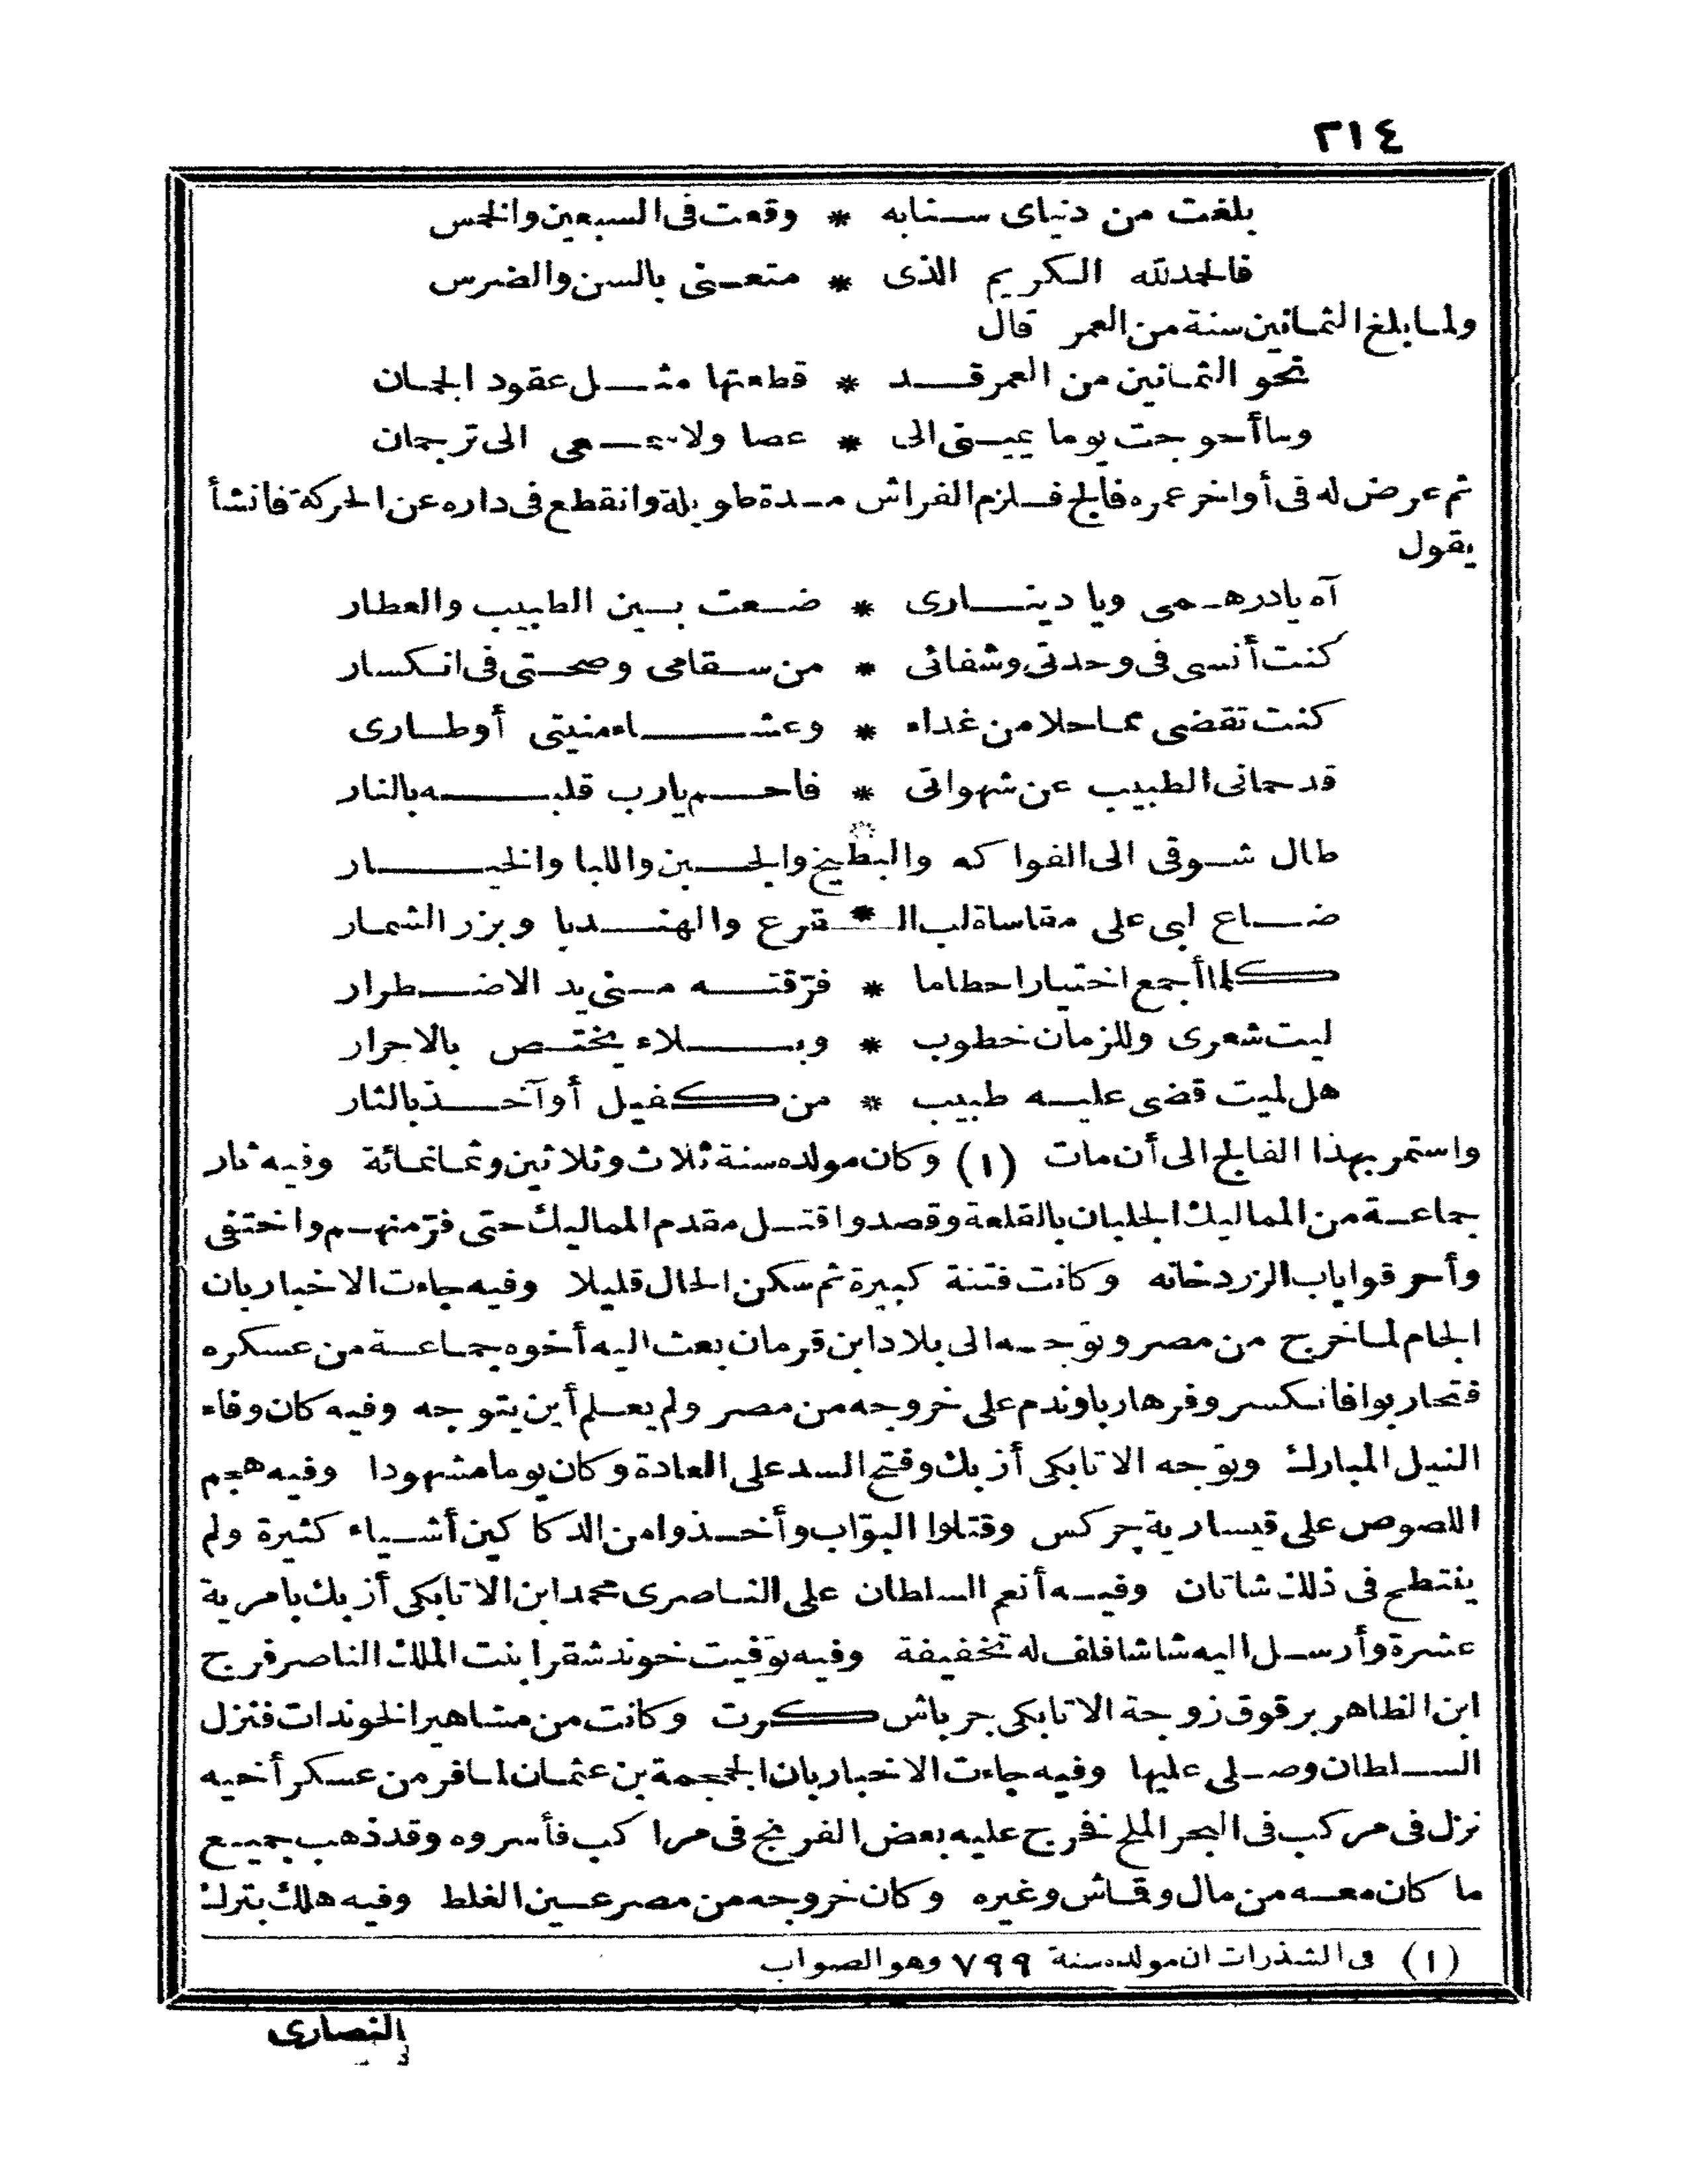 ٢١٤
بلغت من دنياى سنا به * وقعت فى السبعين والخمس
فالحمد لله الكريم الذى * متعنى بالسن والضرس
ولما بلغ الثمانين سنة من العمر قال
نحو الثمانين من العمر قد * قطعتها مثل عقود الجمان
وما أحوجت يوما يمينى الى * عصا ولا سمعى الى ترجمان
ثم عرض له فى أواخر عمره فالج فلزم الفراش مدة طويلة وانقطع فى داره عن الحركة فانشأ
يقول
آه يا درهمى ويا دينارى * ضعت بين الطبيب والعطار
كنت أنسى فى وحدتى وشفائى * من سقامى وصحتى فى انكسار
كنت تقضى مما حلا من غداء * وعشاء منيتى أوطارى
قد حمانى الطبيب عن شهواتى * فاحم يارب قلبه بالنار
طال شوقى الى الفواكه والبطيخ والجبن واللبا والخيار
ضاع لبى على مقاساة لب ال * قرع والهنديا وبزر الشمار
كلما أجمع اختيارا حطاما * فرّقته منى يد الاضطرار
ليت شعرى وللزمان خطوب * وبلاء يختص بالاحرار
هل لميت قضى عليه طبيب * من كفيل أو آخذ بالثار
واستمر بهذا الفالج الى أن مات (١) وكان مولده سنة ثلاث وثلاثين وثمانمائة وفيه ثار
جماعة من المماليك الجلبان بالقلعة وقصدوا قتل مقدم المماليك حتى فرّ منهم واختفى
وأحرقوا باب الزردخانه وكانت فتنة كبيرة ثم سكن الحال قليلا وفيه جاءت الاخبار بان
الجام لما خرج من مصر وتوّجه الى بلاد ابن قرمان بعث اليه أخوه بجماعة من عسكره
فتحاربوا فانكسر وفر هاربا وندم على خروجه من مصر ولم يعلم أين يتوجه وفيه كان وفاء
النيل المبارك وتوّجه الاتابكى أزبك وفتح السد على العادة وكان يوما مشهودا وفيه هجم
اللصوص على قيسارية جركس وقتلوا البوّاب وأخذوا من الدكاكين أشياء كثيرة ولم
ينتطح فى ذلك شاتان وفيه أنعم السلطان على الناصرى محمد ابن الاتابكى أزبك بامرية
عشرة وأرسل اليه شاشا فلف له تخفيفة وفيه توّفيت خوند شقرا بنت الملك الناصر فرج
ابن الظاهر برقوق زوجة الاتابكى جرباش كرت وكانت من مشاهير الخوندات فنزل
السلطان وصلى عليها وفيه جاءت الاخبار بان الجمجمة بن عثمان لما فر من عسكر أخيه
نزل فى مركب فى البحر الملح فخرج عليه بعض الفرنج فى مراكب فأسروه وقد ذهب جميع
ما كان معه من مال وقماش وغيره وكان خروجه من مصر عين الغلط وفيه هلك بترك
(١) فى الشذرات ان مولده سنة ٧٩٩ وهو الصواب
النصارى